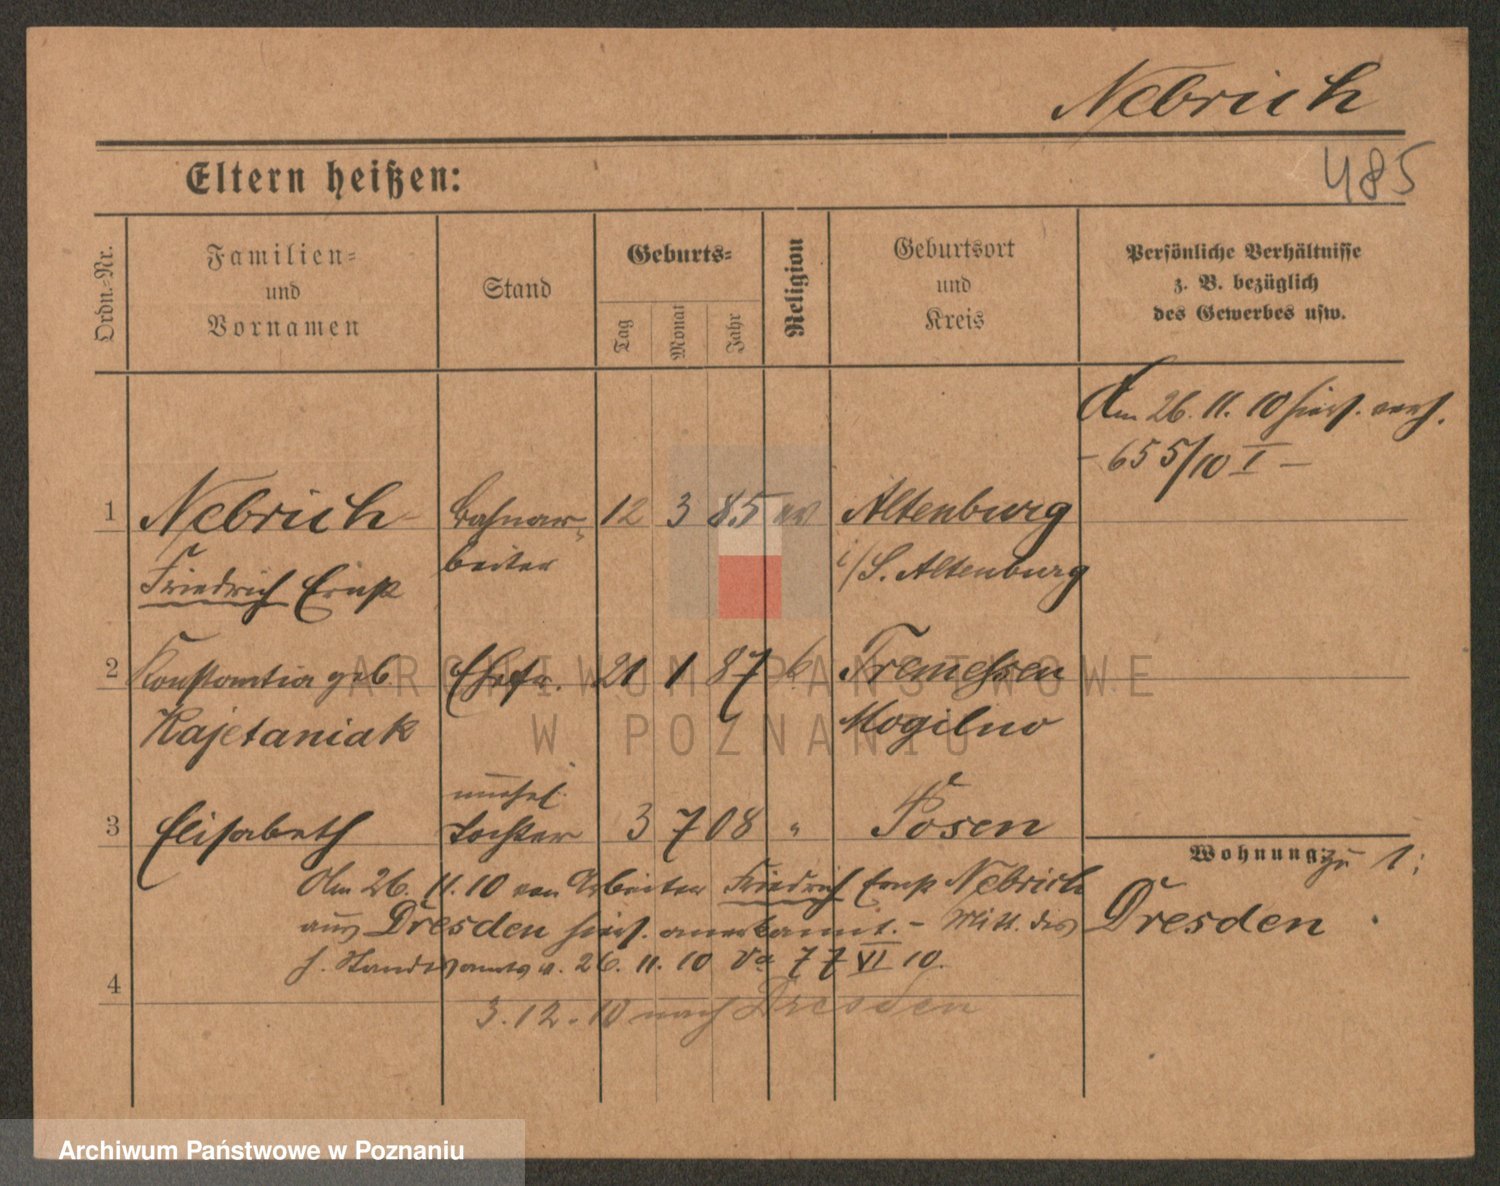 Nebrich
485
Eltern heißen:
Ordn.-Nr.
Familien-
und
Vornamen
Stand
Geburts-
Tag
Monat
Jahr
Religion
Geburtsort
und
Kreis
Persönliche Verhältnisse
z. B. bezüglich
des Gewerbes usw.
Am 26. 11. 10 hies. verh.
- 655/10 I -
1 Nebrich Bahnar- 12 3 85 ev Altenburg
Friedrich Ernst beiter i/S. Altenburg
2 Konstantia geb Ehefr. 21 1 87 k Tremessen
Kajetaniak Mogilno
unehel.
3 Elisabeth Tochter 3 7 08 " Posen
Wohnung: zu 1:
Dresden
Am 26. 11. 10 von Arbeiter Friedrich Ernst Nebrich
aus Dresden hies. anerkannt. - Mitt. des
h. Standesamts v. 26. 11. 10 77 VI 10.
4
3. 12. 10 nach Dresden
ARCHIWUM PAŃSTWOWE
W POZNANIU
Archiwum Państwowe w Poznaniu